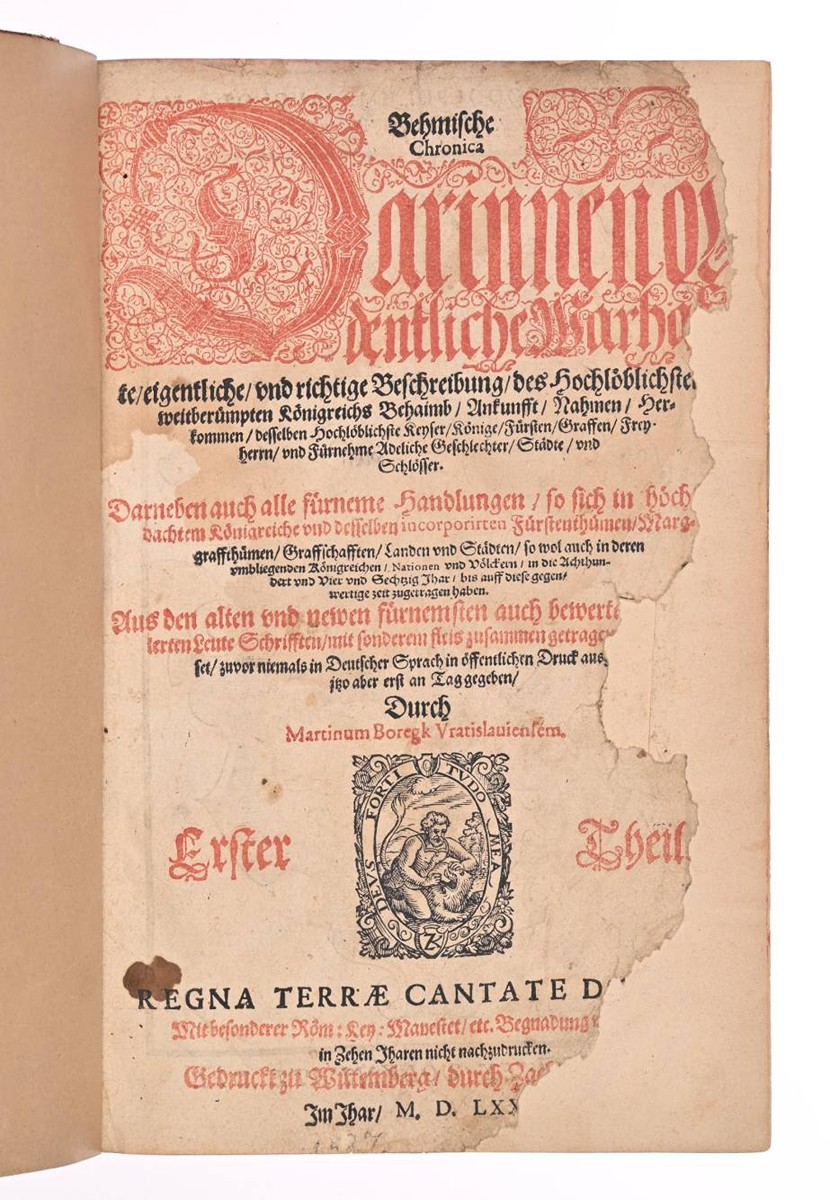 Behmische
Chronica
Darinnen
dentliche Warha
te/ eigentliche/ vnd richtige Beschreibung/ des Hochlöblichste
weitberümpten Königreichs Behaimb/ Ankunfft/ Nahmen/ Her-
kommen/ desselben Hochlöblichste Keyser/ Könige/ Fürsten/ Graffen/ Frey-
herrn/ vnd Fürnehme Adeliche Geschlechter/ Städte/ vnd
Schlösser.
Darneben auch alle fürneme Handlungen/ so sich in höch
dachtem Königreiche vnd desselben incorporirten Fürstenthümen/ Marg-
graffthümen/ Graffschafften/ Landen vnd Städten/ so wol auch in deren
vmbliegenden Königreichen/ Nationen vnd Völckern/ in die Achthun-
dert vnd Vier vnd Sechtzig Jhar/ bis auff diese gegen/
wertige zeit zugetragen haben.
Aus den alten vnd newen fürnemsten auch bewerte
lerten Leute Schrifften/ mit sonderem fleis zusammen getrage
set/ zuvor niemals in Deutscher Sprach in öffentlichen Druck aus
jtzo aber erst an Tag gegeben/
Durch
Martinum Boregk Vratislauiensem.
DEVS FORTITVDO MEA
ZK
Erster Theil.
REGNA TERRÆ CANTATE D
Mit besonderer Röm: Key: Mayestet/ etc. Begnadung
in Zehen Jharen nicht nachzudrucken.
Gedruckt zu Wittemberg/ durch Za
Im Jhar/ M. D. LXX